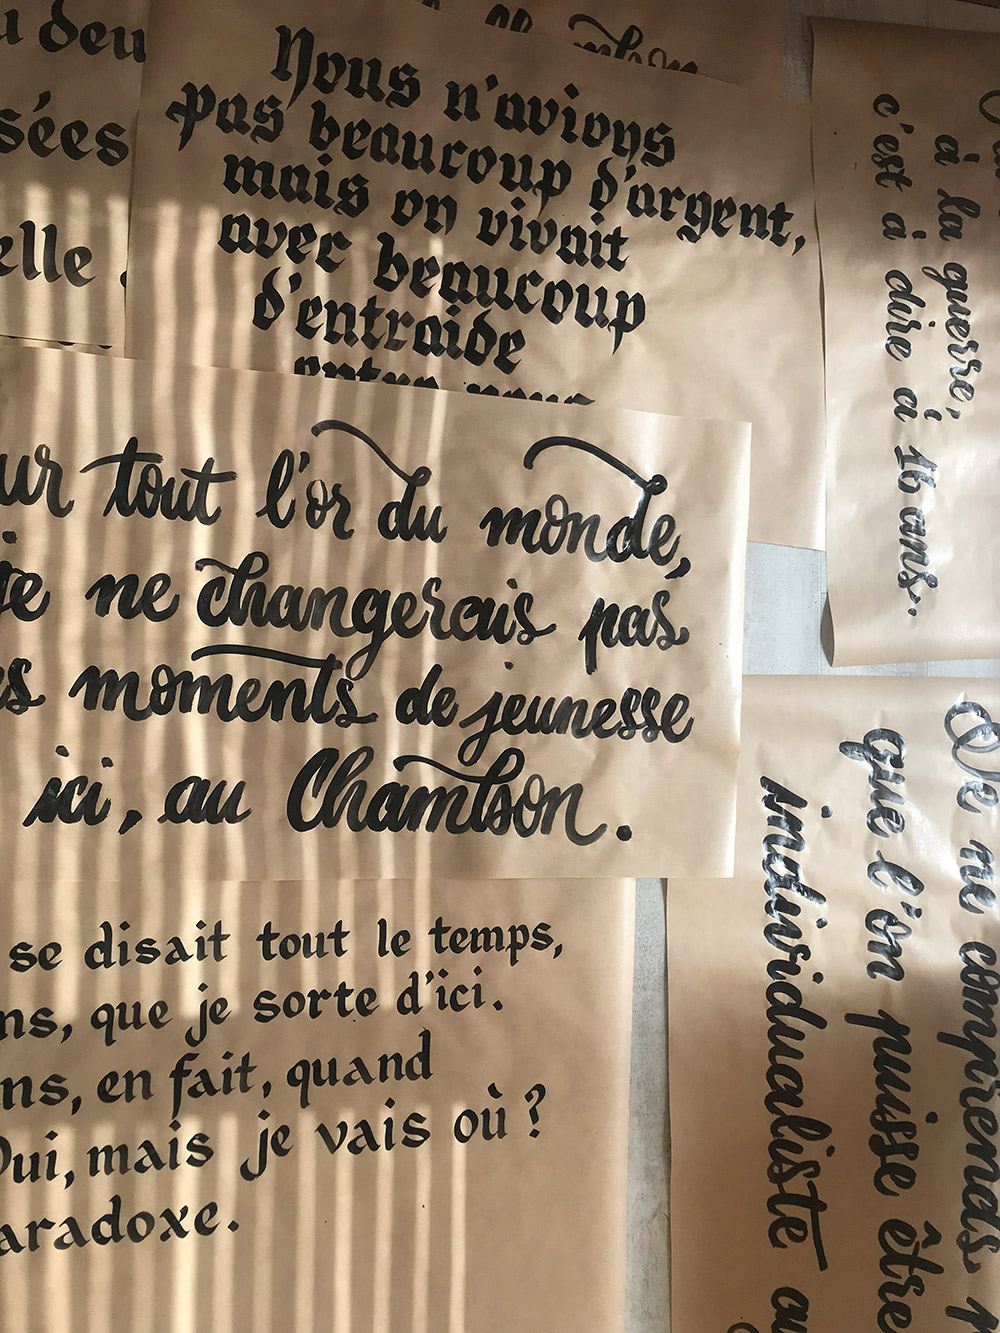 deu
sées
elle.
Nous n'avions
pas beaucoup d'argent,
mais on vivait
avec beaucoup
d'entraide
entre nous
à la guerre,
c'est à dire à 16 ans.
ur tout l'or du monde,
je ne changerais pas
es moments de jeunesse
ici, au Chamlson.
se disait tout le temps,
ns, que je sorte d'ici.
ns, en fait, quand
Oui, mais je vais où ?
aradoxe.
Je ne comprends
que l'on puisse être
individualiste